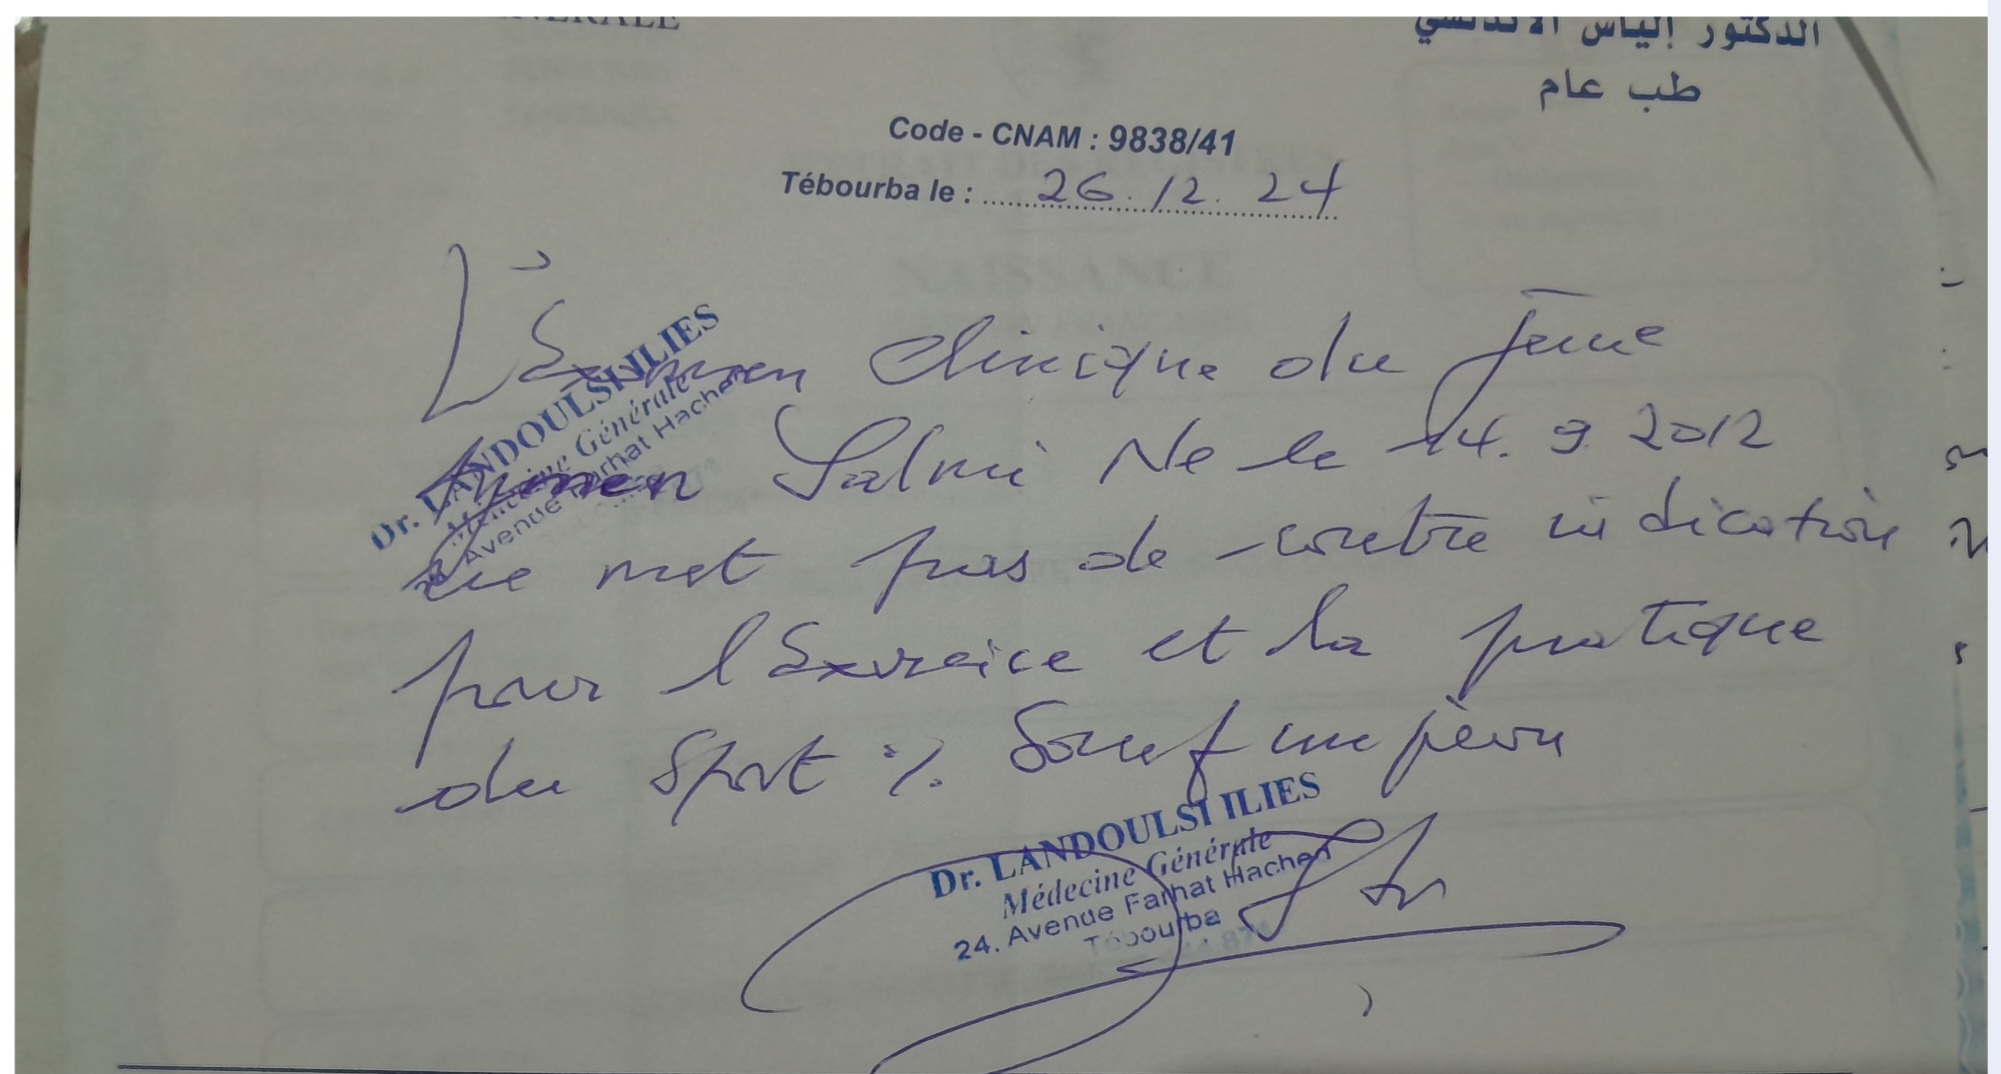 الدكتور إلياس الاندلسي
طب عام
Code - CNAM : 9838/41
Tébourba le : 26.12.24
L'Examen clinique du jeune
Aymen Salmi Ne le 14.9.2012
ne met pas de contre indication
pour l'Exercice et la pratique
du Sport %. Sauf imprévu
Dr. LANDOULSI ILIES
Médecine Générale
Avenue Farhat Hached
Dr. LANDOULSI ILIES
Médecine Générale
24. Avenue Farhat Hached
Tébourba